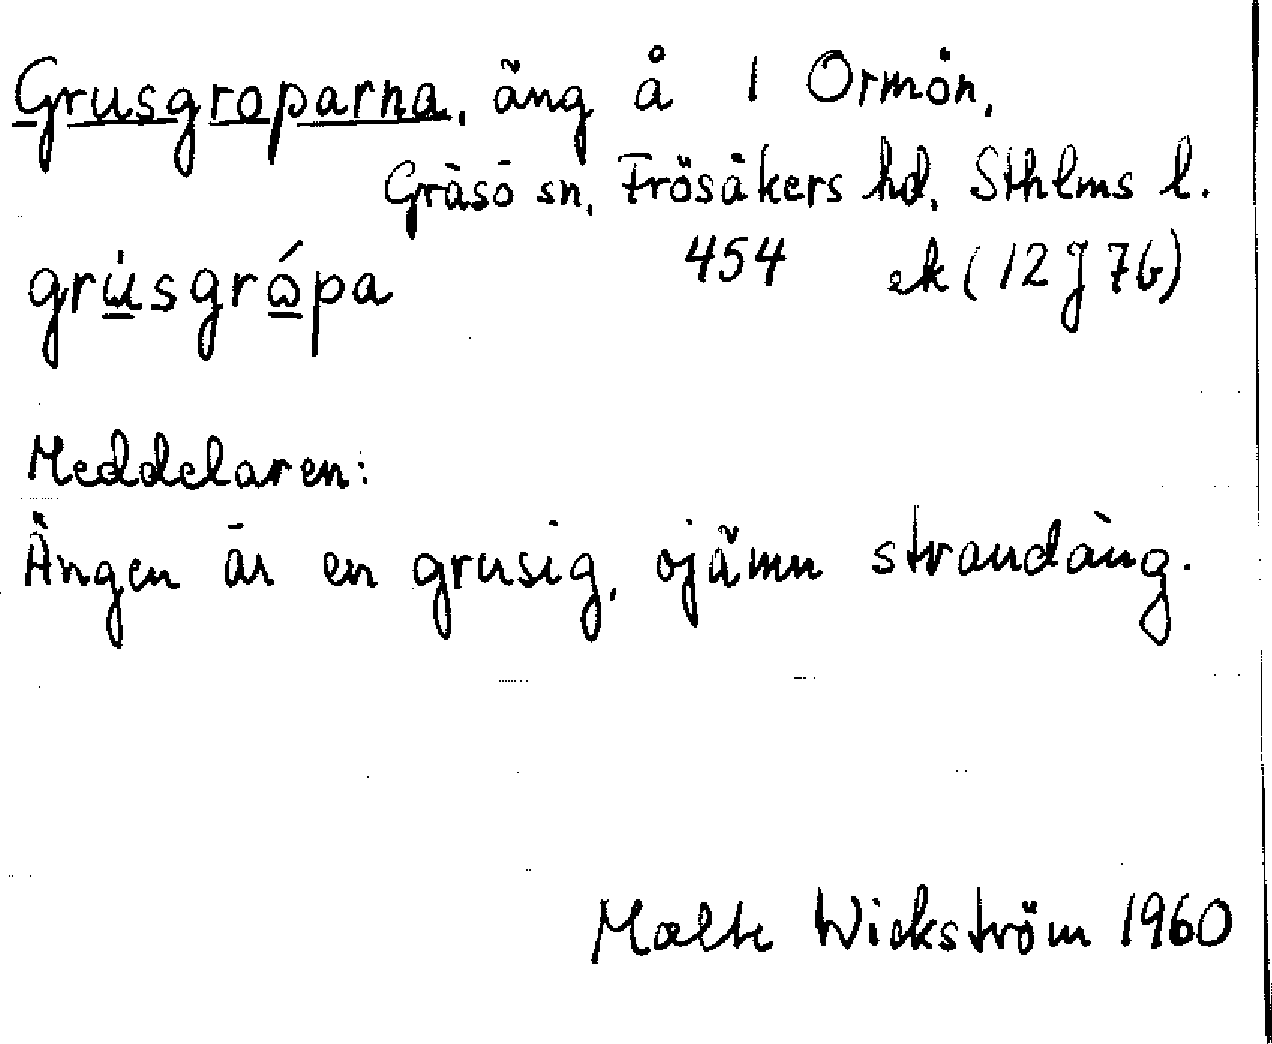 Grusgroparna, äng å 1 Ormön,
Gräsö sn, Frösåkers hd, Sthlms l.
454 ek (12 J 7b)
grùsgrópa
Meddelaren:
Ängen är en grusig, ojämn strandäng.
Malte Wickström 1960